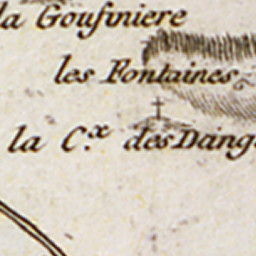 la Gousiniere
les Fontaines
la C.x des Dang